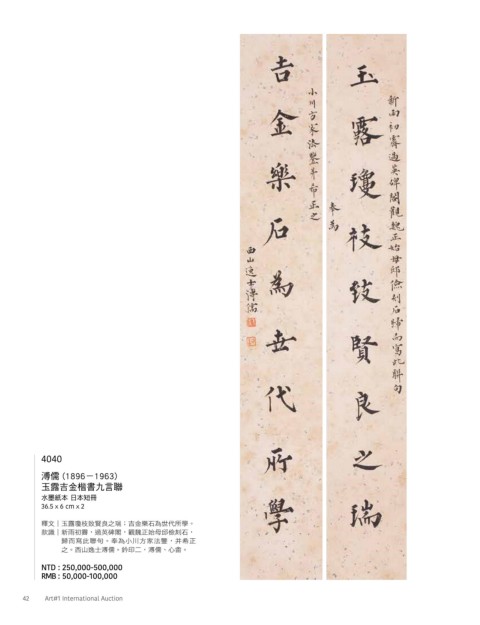 玉露瓊枝致賢良之瑞
新雨初霽過英碑閣觀魏正始毋邱儉刻石歸而寫此聯句
奉為
小川方家法鑒并希正之
吉金樂石為世代所學
西山逸士溥儒
4040
溥儒（1896－1963）
玉露吉金楷書九言聯
水墨紙本 日本短冊
36.5 x 6 cm x 2
釋文｜玉露瓊枝致賢良之瑞；吉金樂石為世代所學。
款識｜新雨初霽，過英碑閣，觀魏正始毋邱儉刻石，
歸而寫此聯句。奉為小川方家法鑒，并希正
之。西山逸士溥儒。鈐印二，溥儒、心畬。
NTD : 250,000-500,000
RMB : 50,000-100,000
42 Art#1 International Auction